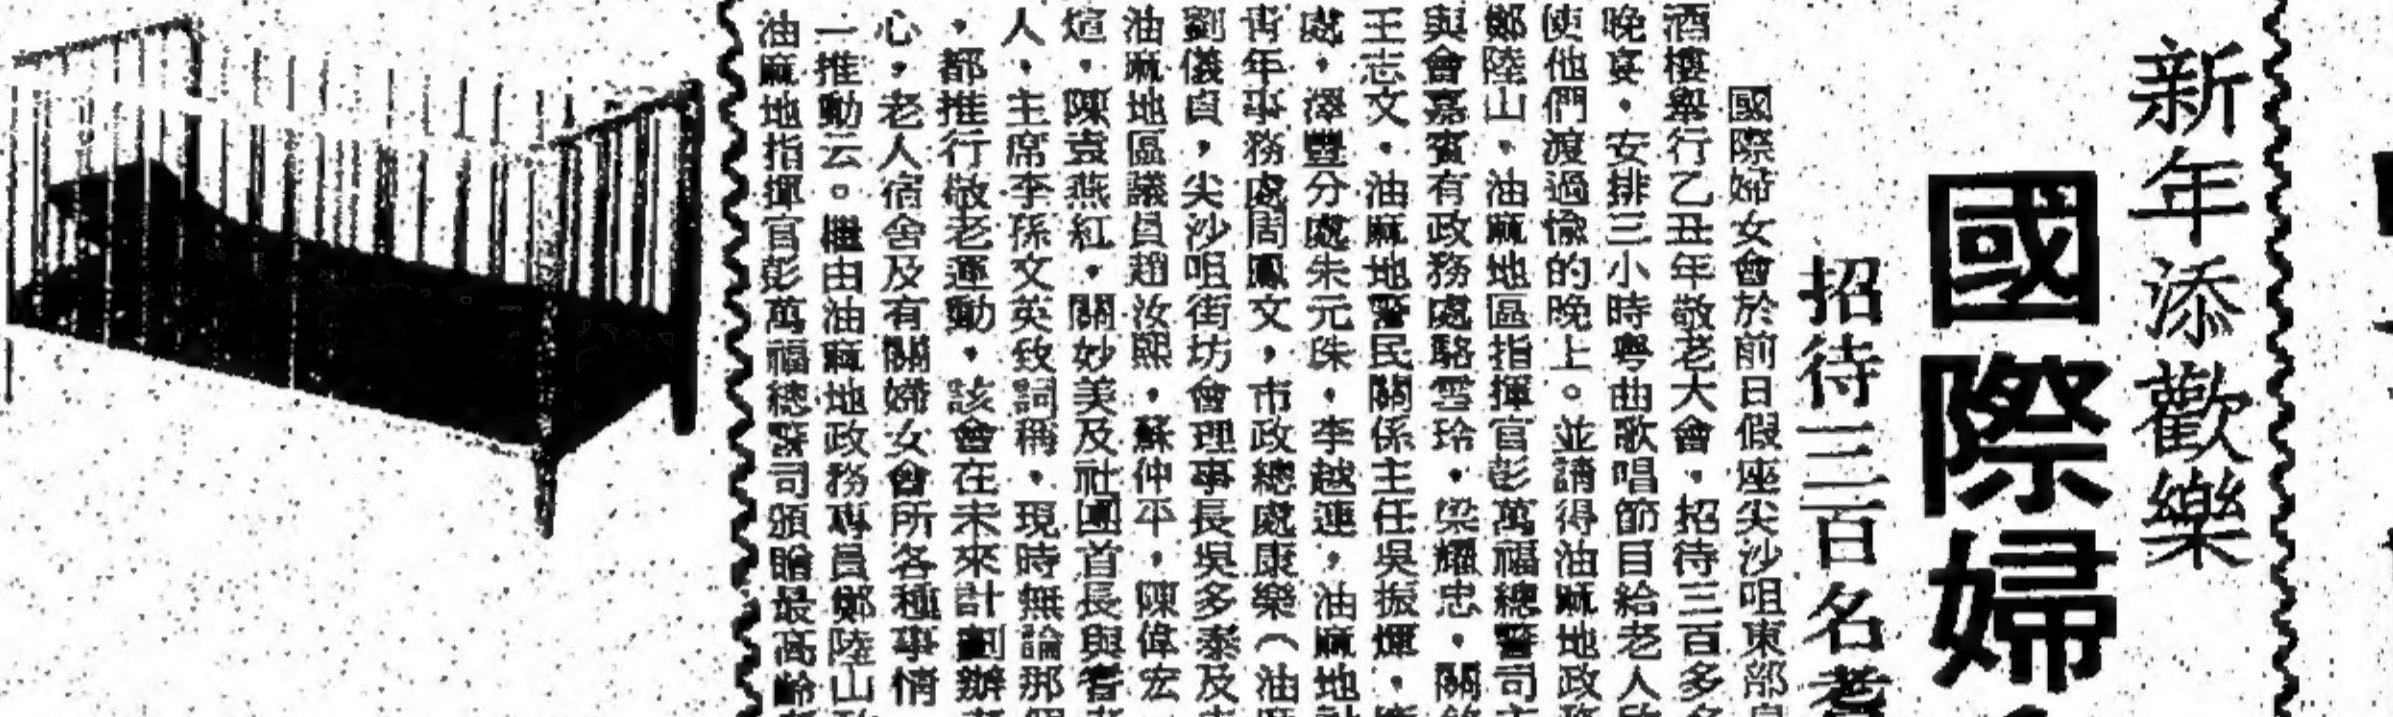 新年添歡樂
國際婦
招待三百名耆
國際婦女會於前日假座尖沙咀東部
酒樓舉行乙丑年敬老大會，招待三百多名
晚宴，安排三小時粵曲歌唱節目給老人
使他們渡過愉的晚上。並請得油麻地政務
鄭陸山，油麻地區指揮官彭萬福總警司
與會嘉賓有政務處駱雪玲，梁耀忠，關
王志文，油麻地警民關係主任吳振煇，
處，澤豐分處朱元珠，李越連，油麻地社
青年事務處周鳳文，市政總處康樂（油麻
劉儀貞，尖沙咀街坊會理事長吳多泰及
油麻地區議員趙汝熙，蘇仲平，陳偉宏
煊，陳袁燕紅，關妙美及社團首長與耆
人，主席李孫文英致詞稱，現時無論那
，都推行敬老運動，該會在未來計劃辦
心，老人宿舍及有關婦女會所各種事情
一推動云。繼由油麻地政務專員鄭陸山
油麻地指揮官彭萬福總警司頒贈最高齡